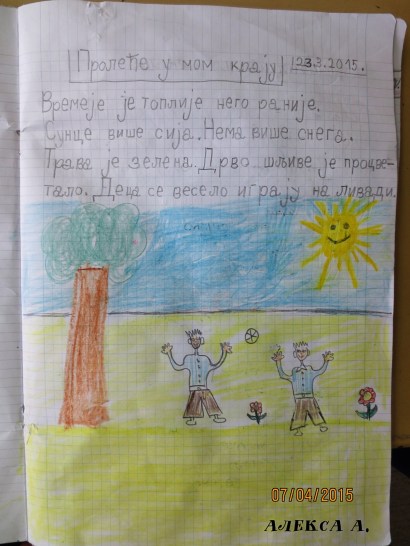 Пролеће у мом крају 23.3.2015.
Времеје је топлије него раније.
Сунце више сија. Нема више снега.
Трава је зелена. Дрво шљиве је процве-
тало. Деца се весело играју на ливади.
07/04/2015
АЛЕКСА А.